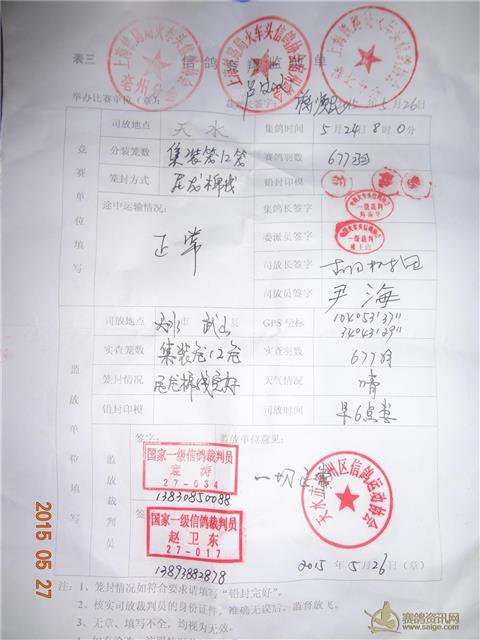 表三
信鸽竞翔监放单
举办比赛单位（章）：
裁判签字：
2015 年 5月26日
竞赛单位填写
司放地点 天水 集鸽时间 5月24日8时0分
分装笼数 集装箱12笼 赛鸽羽数 677羽
笼封方式 铅封印模
途中运输情况： 正常
集鸽长签字
委派员签字
一级裁判
司放长签字
司放员签字 尹海
监放单位填写
司放地点 市 武山 县 GPS坐标 104°053'37"
34°043'29"
实查笼数 集装笼12笼 实查羽数 677羽
笼封情况 完好 天气情况 晴
铅封印模 司放时间 早6点整
监放裁判员
签字： 监放单位意见：
国家一级信鸽裁判员
27-034
13830850088
一切正常
天水市秦州区信鸽运动协会
国家一级信鸽裁判员
赵卫东
27-017
13893882878
2015 年 5月26日（章）
注：1、笼封情况如符合要求请填写“铅封完好”。
2、核实司放裁判员的身份证件，准确无误后，监督放飞。
3、无章、填写不全，均视为无效。
2015 05 27
赛鸽资讯网
www.saige.com